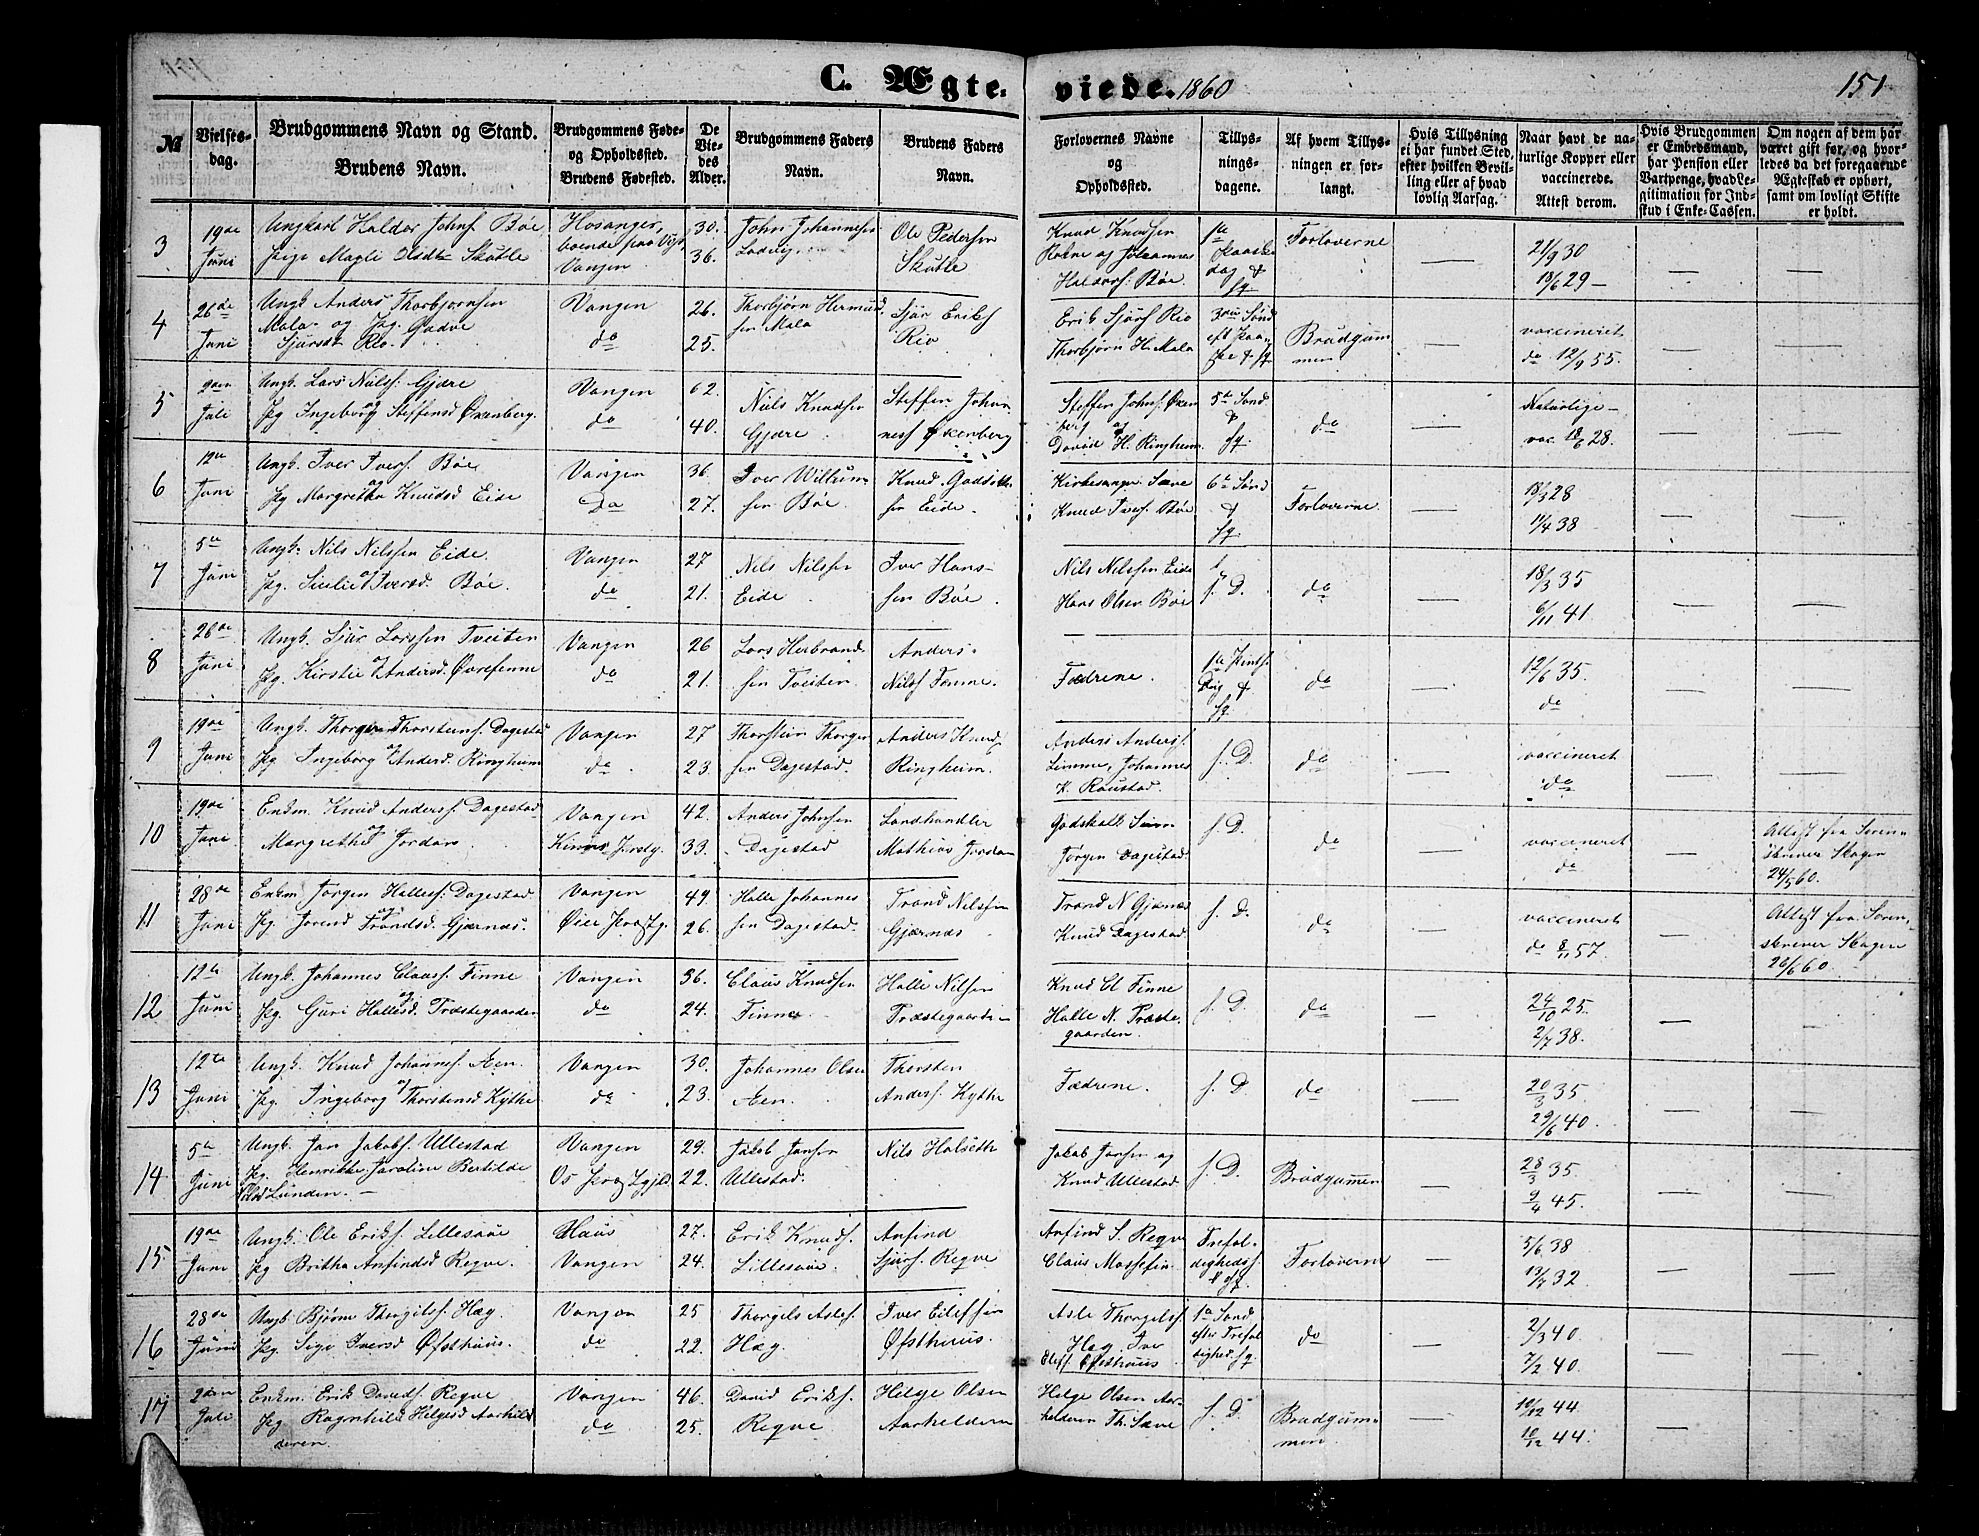 C. Ægteviede. 1860
151
№
Vielses-dag.
Brudgommens Navn og Stand.
Brudens Navn.
Brudgommens Føde- og Opholdssted.
Brudens Fødested.
De Viedes Alder.
Brudgommens Faders Navn.
Brudens Faders Navn.
Forlovernes Navne og Opholdssted.
Tillysningsdagene.
Af hvem Tillysningen er forlangt.
Hvis Tillysning ei har fundet Sted, efter hvilken Bevilling eller af hvad lovlig Aarsag.
Naar havt de naturlige Kopper eller vaccinerede. Attest derom.
Hvis Brudgommen er Embedsmand, har Pension eller Vartpenge, hvad Legitimation for Indskud i Enke-Cassen.
Om nogen af dem har været gift før, og hvorledes da det foregaaende Ægteskab er ophørt, samt om lovligt Skifte er holdt.
3
19de Juni
Ungkarl Haldor Johns. Bøe
Pige Magli Olsdtr Skutle
Hosanger, boende paa
Vangen
30.
36.
John Johannesen
Ole Pedersen Skutle
Knud Knudsen Rokne og Johannes Haldors. Bøe
1te Paaskedag & fg.
Forloverne
—
21/9 30
18/6 29 —
—
—
4
26de Juni
Ungk Anders Thorbjørnsen Mala og Pg. Gudve Sjursdt Rio
Vangen
do
26.
25.
Thorbjørn Hermundsen Mala
Sjur Eriks Rio
Erik Sjurs Rio
Thorbjørn H. Mala
3die Sønd eft Paaske & fg
Brudgummen
—
vaccineret
do 12/9 55.
—
—
5
9den Juli
Ungk. Lars Nils. Gjære
og
Pg Ingeborg Steffensd Øxenberg.
Vangen
do
62.
40.
Niels Knudsen Gjære
Steffen Johannes Øxenberg
Steffen Johns. Øxenberg og
David H. Ringheim
5te Sønd. & fg.
do
—
Naturlige —
vac. 18/6 28.
—
—
6
12te Juni
Ungk. Iver Ivers. Bøe
og
Pg Margretha Knudsd Eide
Vangen
Do
36.
27.
Iver Bøe
Knud Eide
Kirkesanger Sæve
Knud Ivers. Bøe
6te Sønd & fg
Forloverne
—
18/3 28
11/4 38
—
—
7
5te Juni
Ungk. Nils Nilssen Eide
og
Pg. Siulie Iversd. Bøe.
Vangen
do
27
21.
Nils Nilssen Eide
Iver Hanssen Bøe
Nils Nilssen Eide
Hans Olsen Bøe
f. D.
do
—
18/3 35
6/11 41
—
—
8
26de Juni
Ungk. Sjur Larssen Tveiten
og
Pg. Kirstie Andersd. Øvrefenne
Vangen
do
26
21.
Lars Herbrandsen Tveiten
Anders Nilss Fenne.
Fædrene.
1te Pintsdag & fg
do
—
12/6 35.
do
—
—
9
19de Juni
Ungk. Thorger Thorsteins. Dagestad
og
Pg Ingeborg Andersd. Ringheim
Vangen
do
27
23.
Thorstein Thorgersen Dagestad.
Anders Knuds Ringheim.
Anders Anders. Limme, Johannes K. Raustad
f. D.
do
—
vaccineret
do
—
—
10
19de Juni
Enkm. Knud Anderss. Dagestad
og
Margrethe Jordan
Vangen
42.
33.
Anders Johnsen Dagestad
Landhandler Mathias Jordan
Godskalk
Jørgen Dagestad
f. D.
do
—
vaccineret
do
—
Attest fra Sorenskriver Skagen 24/5 60.
11
28de Juni
Enkm Jørgen Halless. Dagestad
og
Pg. Jorend Trondsd. Gjærnæs.
Vangen
49.
26.
Halle Johannessen Dagestad.
Trond Nilssen Gjærnæs
Trond N Gjærnæs
Knud Dagestad
f. D.
do
—
vaccineret
do 8/11 57.
—
Attest fra Sorenskriver Skagen 26/6 60.
12
12te Juni
Ungk. Johannes Claass. Finne
og
Pg. Guri Hallesd. Præstegaarden
Vangen
do
36.
24.
Claus Knudsen Finne
Halle Nilsen Præstegaarden
Knud Cl Finne
Halle N. Præstegaarden
f. D
do
—
24/10 25.
2/7 38.
—
—
13
12te Juni
Ungk. Knud Johannes. Aen.
og
Pg. Ingeborg Thorstensd Kythe
Vangen
do
30.
23.
Johannes Olsen Aen.
Thorsten Anders. Kythe
Fædrene.
f. D
do
—
20/3 35.
29/6 40.
—
—
14
5te Juni
Ungk. Jan Jakobs. Ullestad
Pg. Henrikke Karoline Bertilde Lunden. —
Vangen
29.
22.
Jakob Jansen Ullestad.
Nils Halseth
Jakob Jansen og
Knud Ullestad
f. D.
Brudgummen
—
28/3 35.
9/4 45.
—
—
15
19de Juni
Ungk. Ole Eriks. Lillesaae
Pg Britha Anfindsd Reqve.
Haus
Vangen
27.
24.
Erik Knuds. Lillesaae.
Anfind Sjurs. Reqve
Anfind S. Reqve
Claus Mossefin.
Trefoldigheds & fg.
Forloverne
—
5/6 38
13/7 32
—
—
16
28de Juni
Ungk Bjørne Thorgils. Hæg
Pg. Sigo Iversd Øfsthuus.
Vangen
do
25
22.
Thorgils Asles. Hæg.
Iver Eilefsen Øfsthuus.
Asle Thorgilss. Hæg. Iver Eleff Øfsthuus
1te Sønd efter Trefoldighed. fg
do
—
2/3 40.
7/2 40.
—
—
17
2den Juli
Enkm. Erik Davids. Reqve
Pg Ragnhild Helgesd Aarhelderen
Vangen
do
46.
25.
David Eriks. Reqve
Helge Olsen Aarhelderen
Helge Olsen Aarhelderen Th. Sæve
f. D.
Brudgummen
—
10/12 44.
10/12 44.
—
—